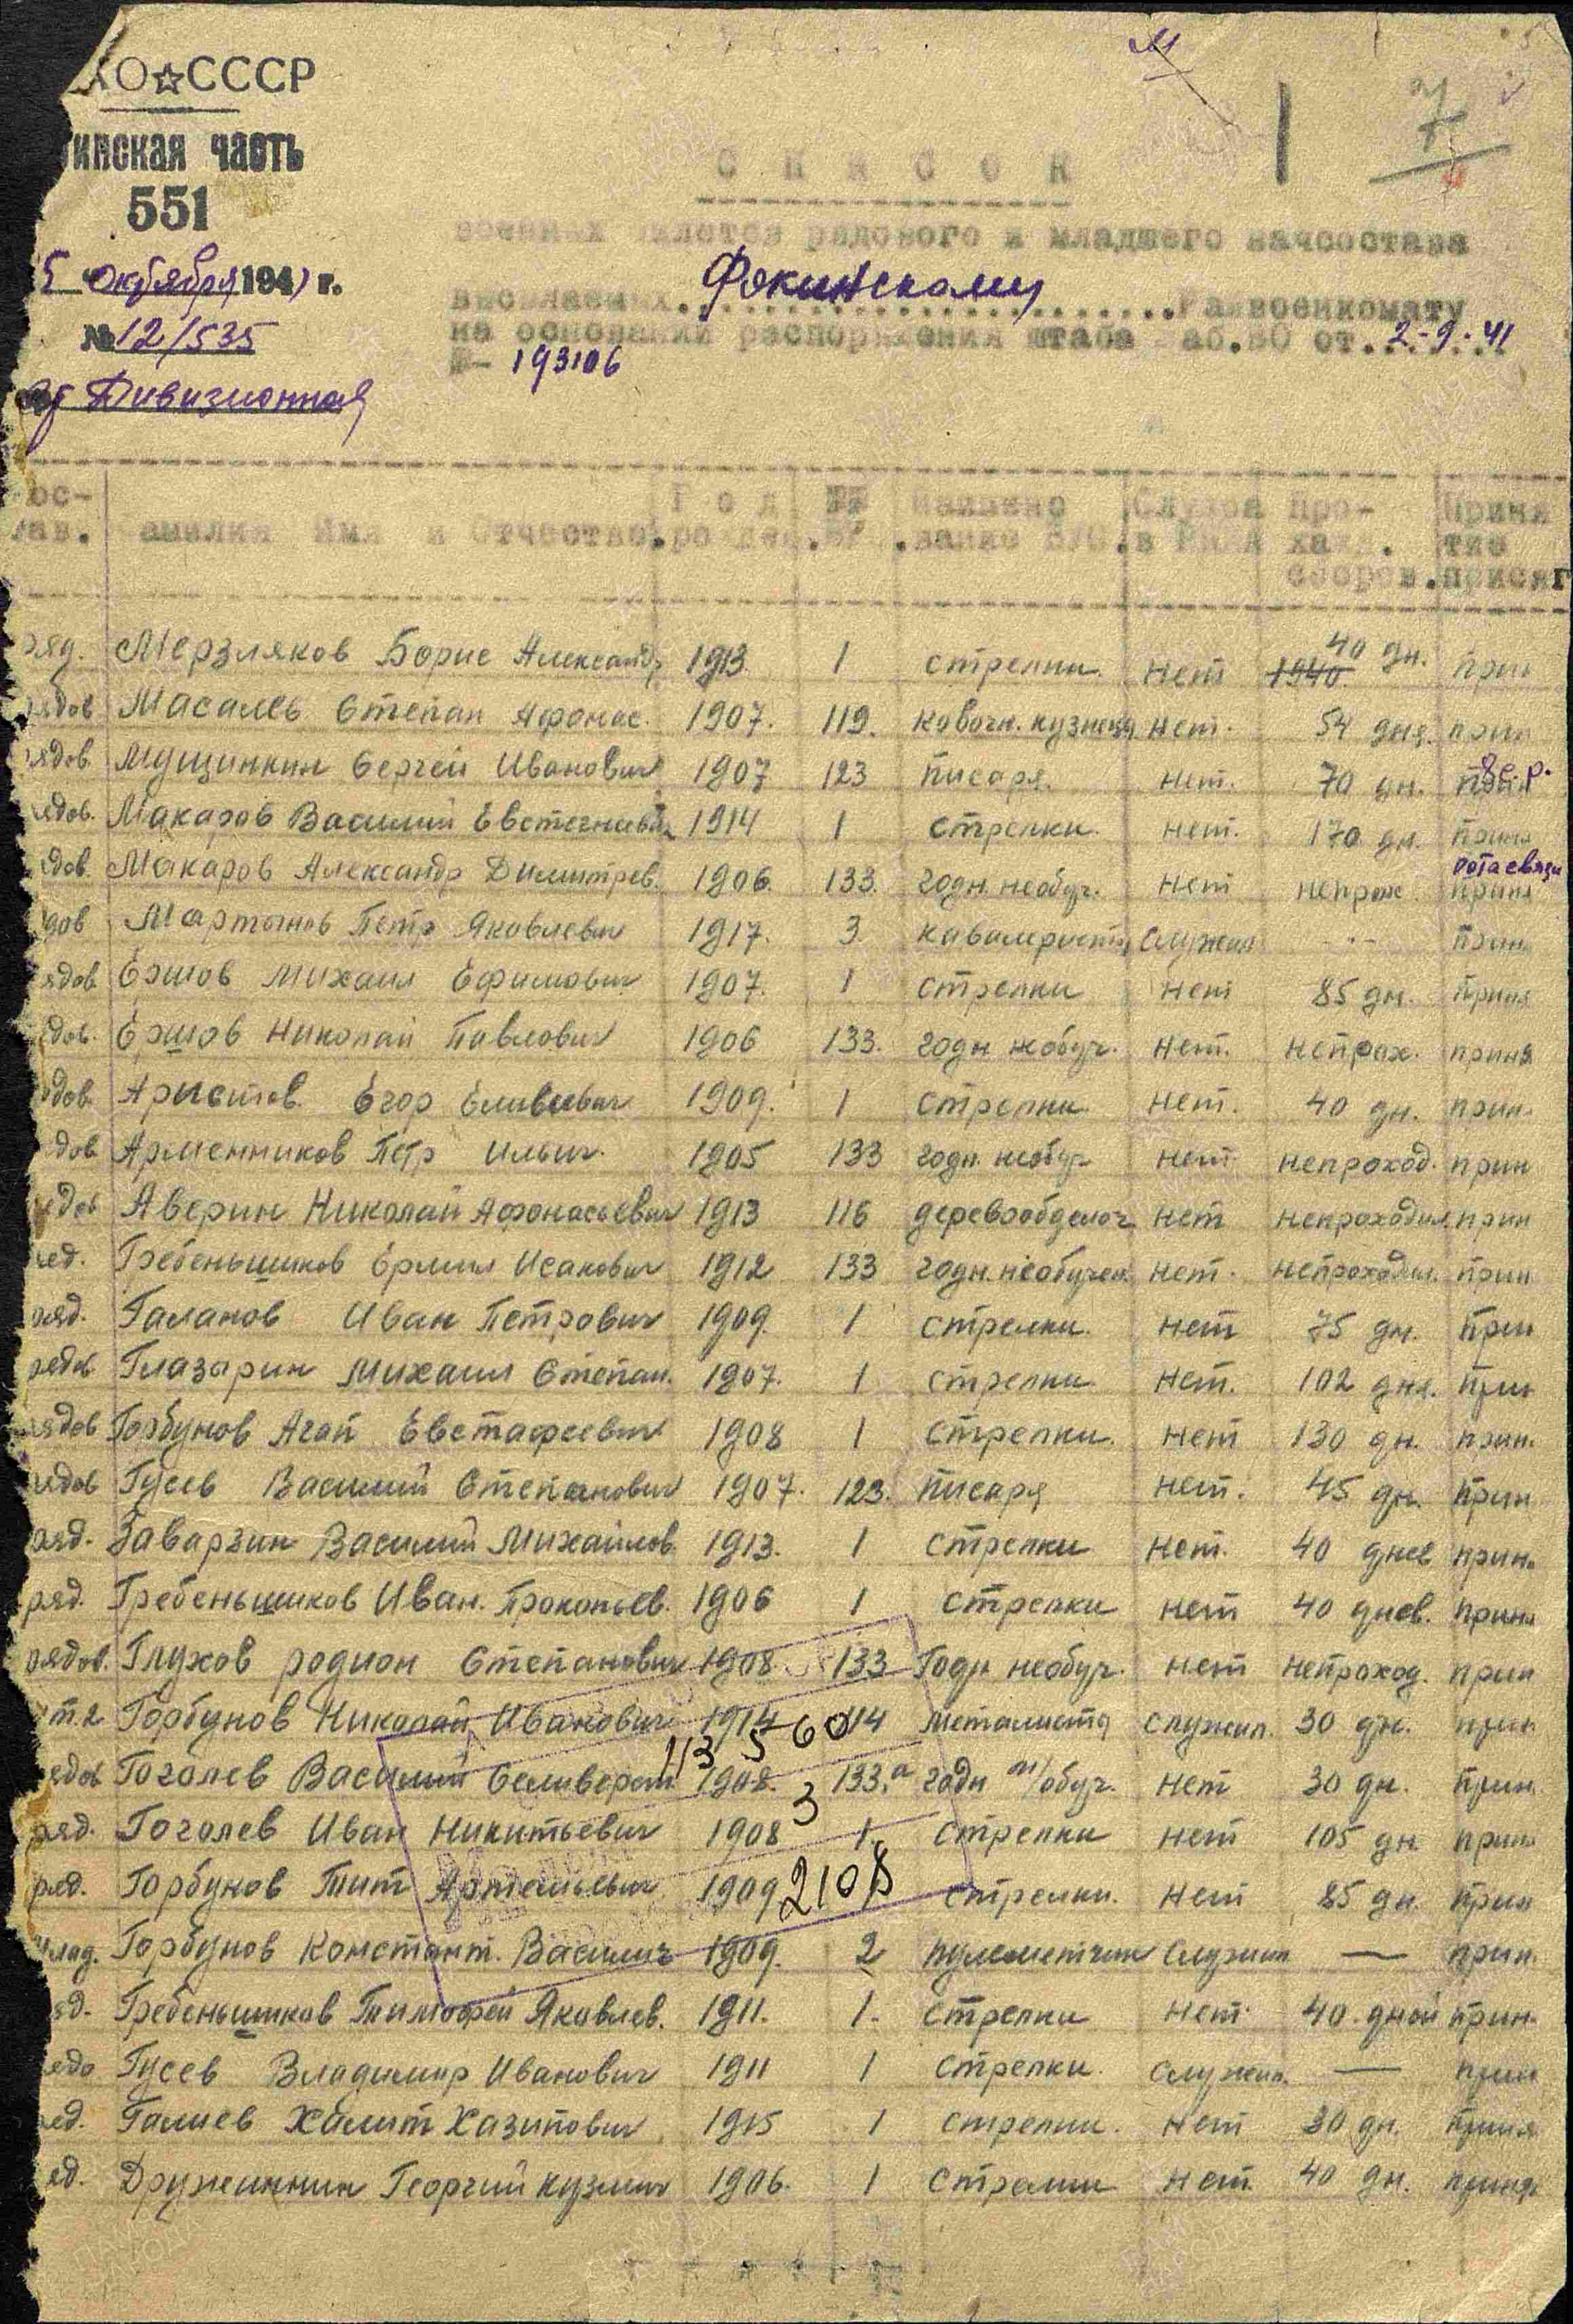 КО☆СССР
инская часть
551
5 октября 1941 г.
№ 12/535
Дивизионная
7
СПИСОК
военных билетов рядового и младшего начсостава
высланных Фокинскому Райвоенкомату
на основании распоряжения штаба аб.ВО от 2-9-41
№- 193106
ос-
ав. амилия Имя и Отчество. Год рожден. №№ Наимено
вание ВУС. Служба в РККА Про-
хожд.
сборов. Приня
тие
присяг
ряд. Мерзляков Борис Александ. 1913. 1 стрелки. нет 1940. 40 дн. прин
рядов Масалев Степан Афонас. 1907. 119. ковочн. кузнецы нет. 54 дня. прин
рядов. Мущинкин Сергей Иванович 1907 123 писаря. нет. 70 дн. прин
ядов. Макаров Василий Евстегнеевич 1914 1 стрелки. нет. 170 дн. прин
дов. Макаров Александр Димитрев. 1906. 133. годн. необуч. нет непрох. прин рота связи
дов Мартынов Петр Яковлевич 1917. 3. кавалеристы служил - - - прин
ядов Ершов Михаил Ефимович 1907. 1 стрелки нет 85 дн. приня
дов. Ершов Николай Павлович 1906 133. годн необуч. нет. непрох. приня
дов. Аристов Егор Еливевич 1909. 1 стрелки. нет. 40 дн. прин.
дов Арменников Петр Ильич. 1905 133 годн. необуч нет. непроход. прин
дов Аверин Николай Афонасьевич 1913 116 деревообделоч нет непроходил прин
ед. Гребеньшиков Ермил Исакович 1912 133 годн. необучен. нет. непроходил. прин
ряд. Галанов Иван Петрович 1909. 1 стрелки. нет 75 дн. прин
рядов Глазырин Михаил Степан. 1907. 1 стрелки. нет. 102 дня. прин
рядов Горбунов Агап Евстафеевич 1908 1 стрелки. нет 130 дн. прин.
рядов Гусев Василий Степанович 1907. 123. писаря нет. 45 дн. прин
ряд. Гаварзин Василий Михайлов. 1913. 1 стрелки нет. 40 днев прин.
ряд. Гребеньшиков Иван. Прокопьев. 1906 1 стрелки нет 40 днев. прин
рядов. Глухов родион Степанович 1908. 133 Годн необуч. нет непроход. прин
т.2 Горбунов Николай Иванович 1914 114 металисты служил. 30 дн. прин
ядов Гоголев Василий Селиверст. 1908. 133.а годн м/обуч. нет 30 дн. прин.
113560
3
ряд. Гоголев Иван Никитьевич 1908 1. стрелки нет 105 дн. прин
ряд. Горбунов Тит Артемьевич 1909 стрелки. нет 85 дн. прин
2108
млад. Горбунов Констант. Василич 1909. 2 пулеметчик служил — прин.
яд. Гребеньшиков Тимофей Яковлев. 1911. 1. стрелки нет. 40. дней прин.
ядо Гусев Владимир Иванович 1911 1 стрелки. служил. — прин
яд. Галиев Халит Хазипович 1915 1 стрелки. нет 30 дн. приня
яд. Дружинин Георгий кузмич 1906. 1 стрелки нет. 40 дн. приня